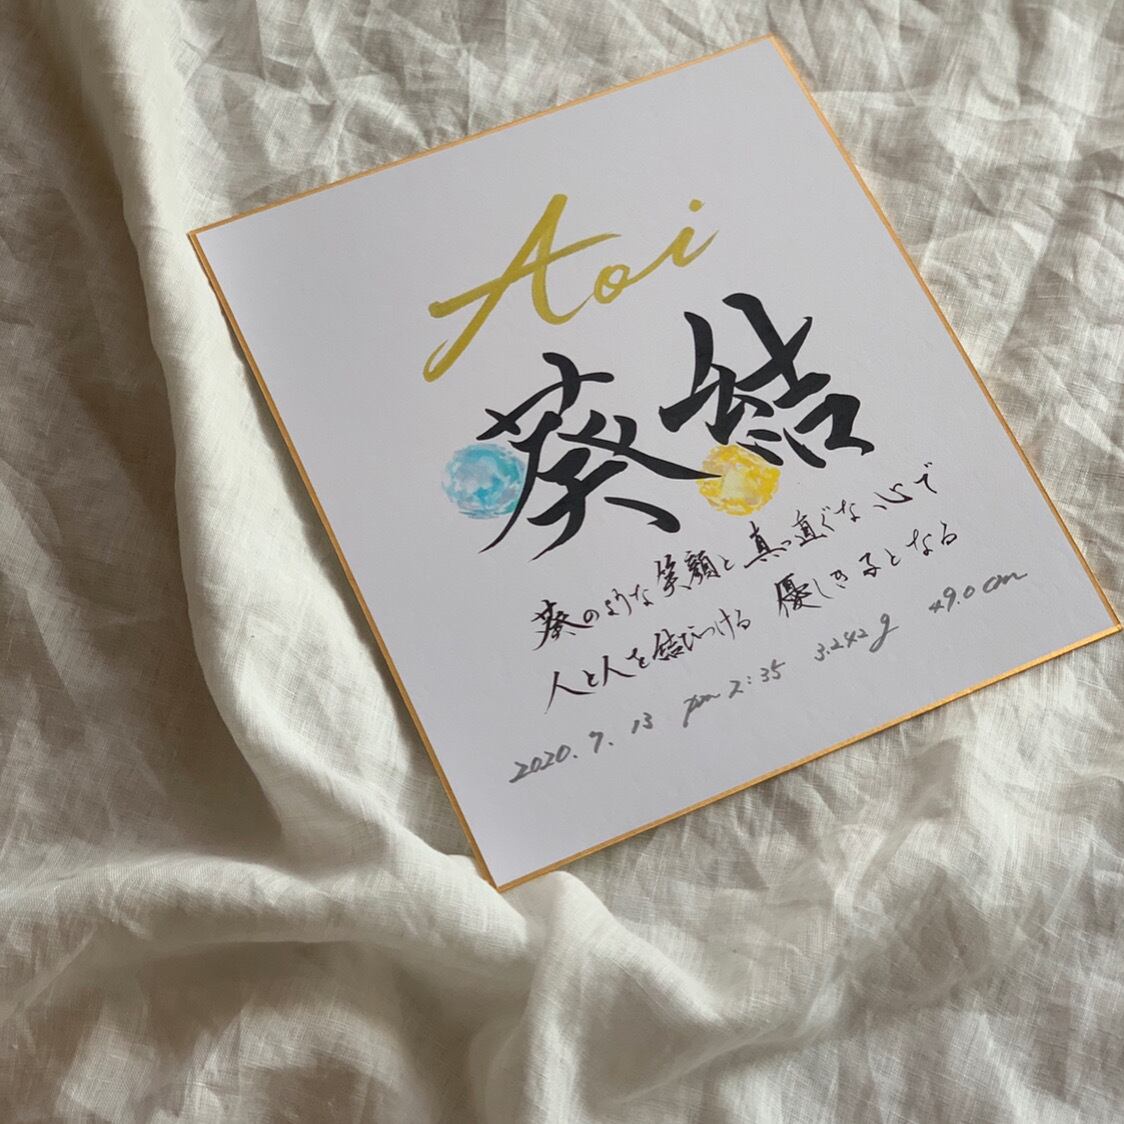 Aoi
葵結
葵のような笑顔と真っ直ぐな心で
人と人を結びつける 優しき子となる
2020. 7. 13 pm 2:35 3.242g 49.0cm